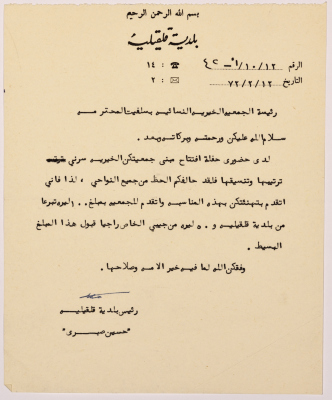 بسم الله الرحمن الرحيم
بلدية قلقيلية
الرقم ١٠/١٢/
☎ : ١٤
التاريخ ٧٢/٢/١٢
✉ : ٢
رئيسة الجمعيه الخيريه النسائيه بسلفيت المحترمه
سلام الله عليكن ورحمته وبركاته وبعد.
لدى حضوري حفلة افتتاح مبنى جمعيتكن الخيريه سرني
ترتيبها وتنسيقها فلقد حالفكم الحظ من جميع النواحي ، لذا فاني
اتقدم بتهنئتكن بهذه المناسبه واتقدم للجمعيه بمبلغ ١٠٠ ليره تبرعا
من بلدية قلقيليه و ٥٠ ليره من جيبي الخاص راجيا قبول هذا المبلغ
البسيط.
وفقكن الله لما فيه خير الامه وصلاحها.
رئيس بلدية قلقيليه
"حسين صبري"